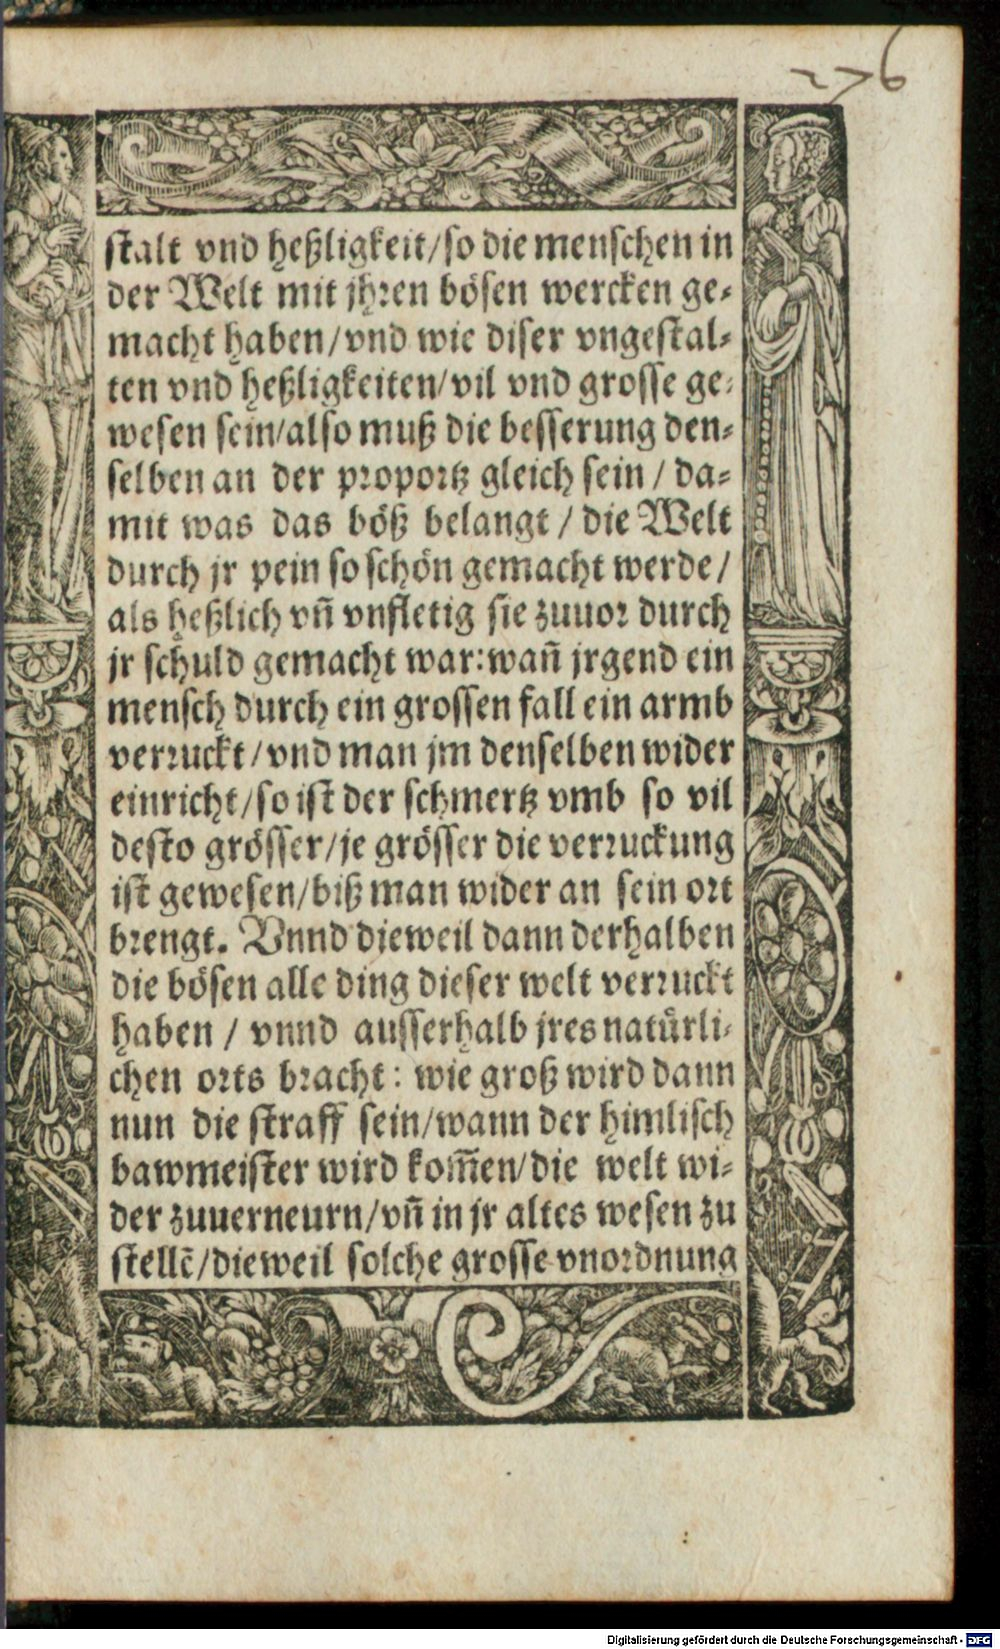 276
stalt vnd heßligkeit/so die menschen in
der Welt mit jhren bösen wercken ge-
macht haben/vnd wie diser vngestal-
ten vnd heßligkeiten/vil vnd grosse ge-
wesen sein/also muß die besserung den-
selben an der proportz gleich sein / da-
mit was das böß belangt / die Welt
durch jr pein so schön gemacht werde/
als heßlich vñ vnfletig sie zuuor durch
jr schuld gemacht war: wañ jrgend ein
mensch durch ein grossen fall ein armb
verruckt/vnd man jm denselben wider
einricht/so ist der schmertz vmb so vil
desto grösser/je grösser die verruckung
ist gewesen/biß man wider an sein ort
brengt. Vnnd dieweil dann derhalben
die bösen alle ding dieser welt verruckt
haben / vnnd ausserhalb jres natürli-
chen orts bracht: wie groß wird dann
nun die straff sein/wann der himlisch
bawmeister wird kom̃en/die welt wi-
der zuuerneurn/vñ in jr altes wesen zu
stellẽ/dieweil solche grosse vnordnung
Digitalisierung gefördert durch die Deutsche Forschungsgemeinschaft - DFG